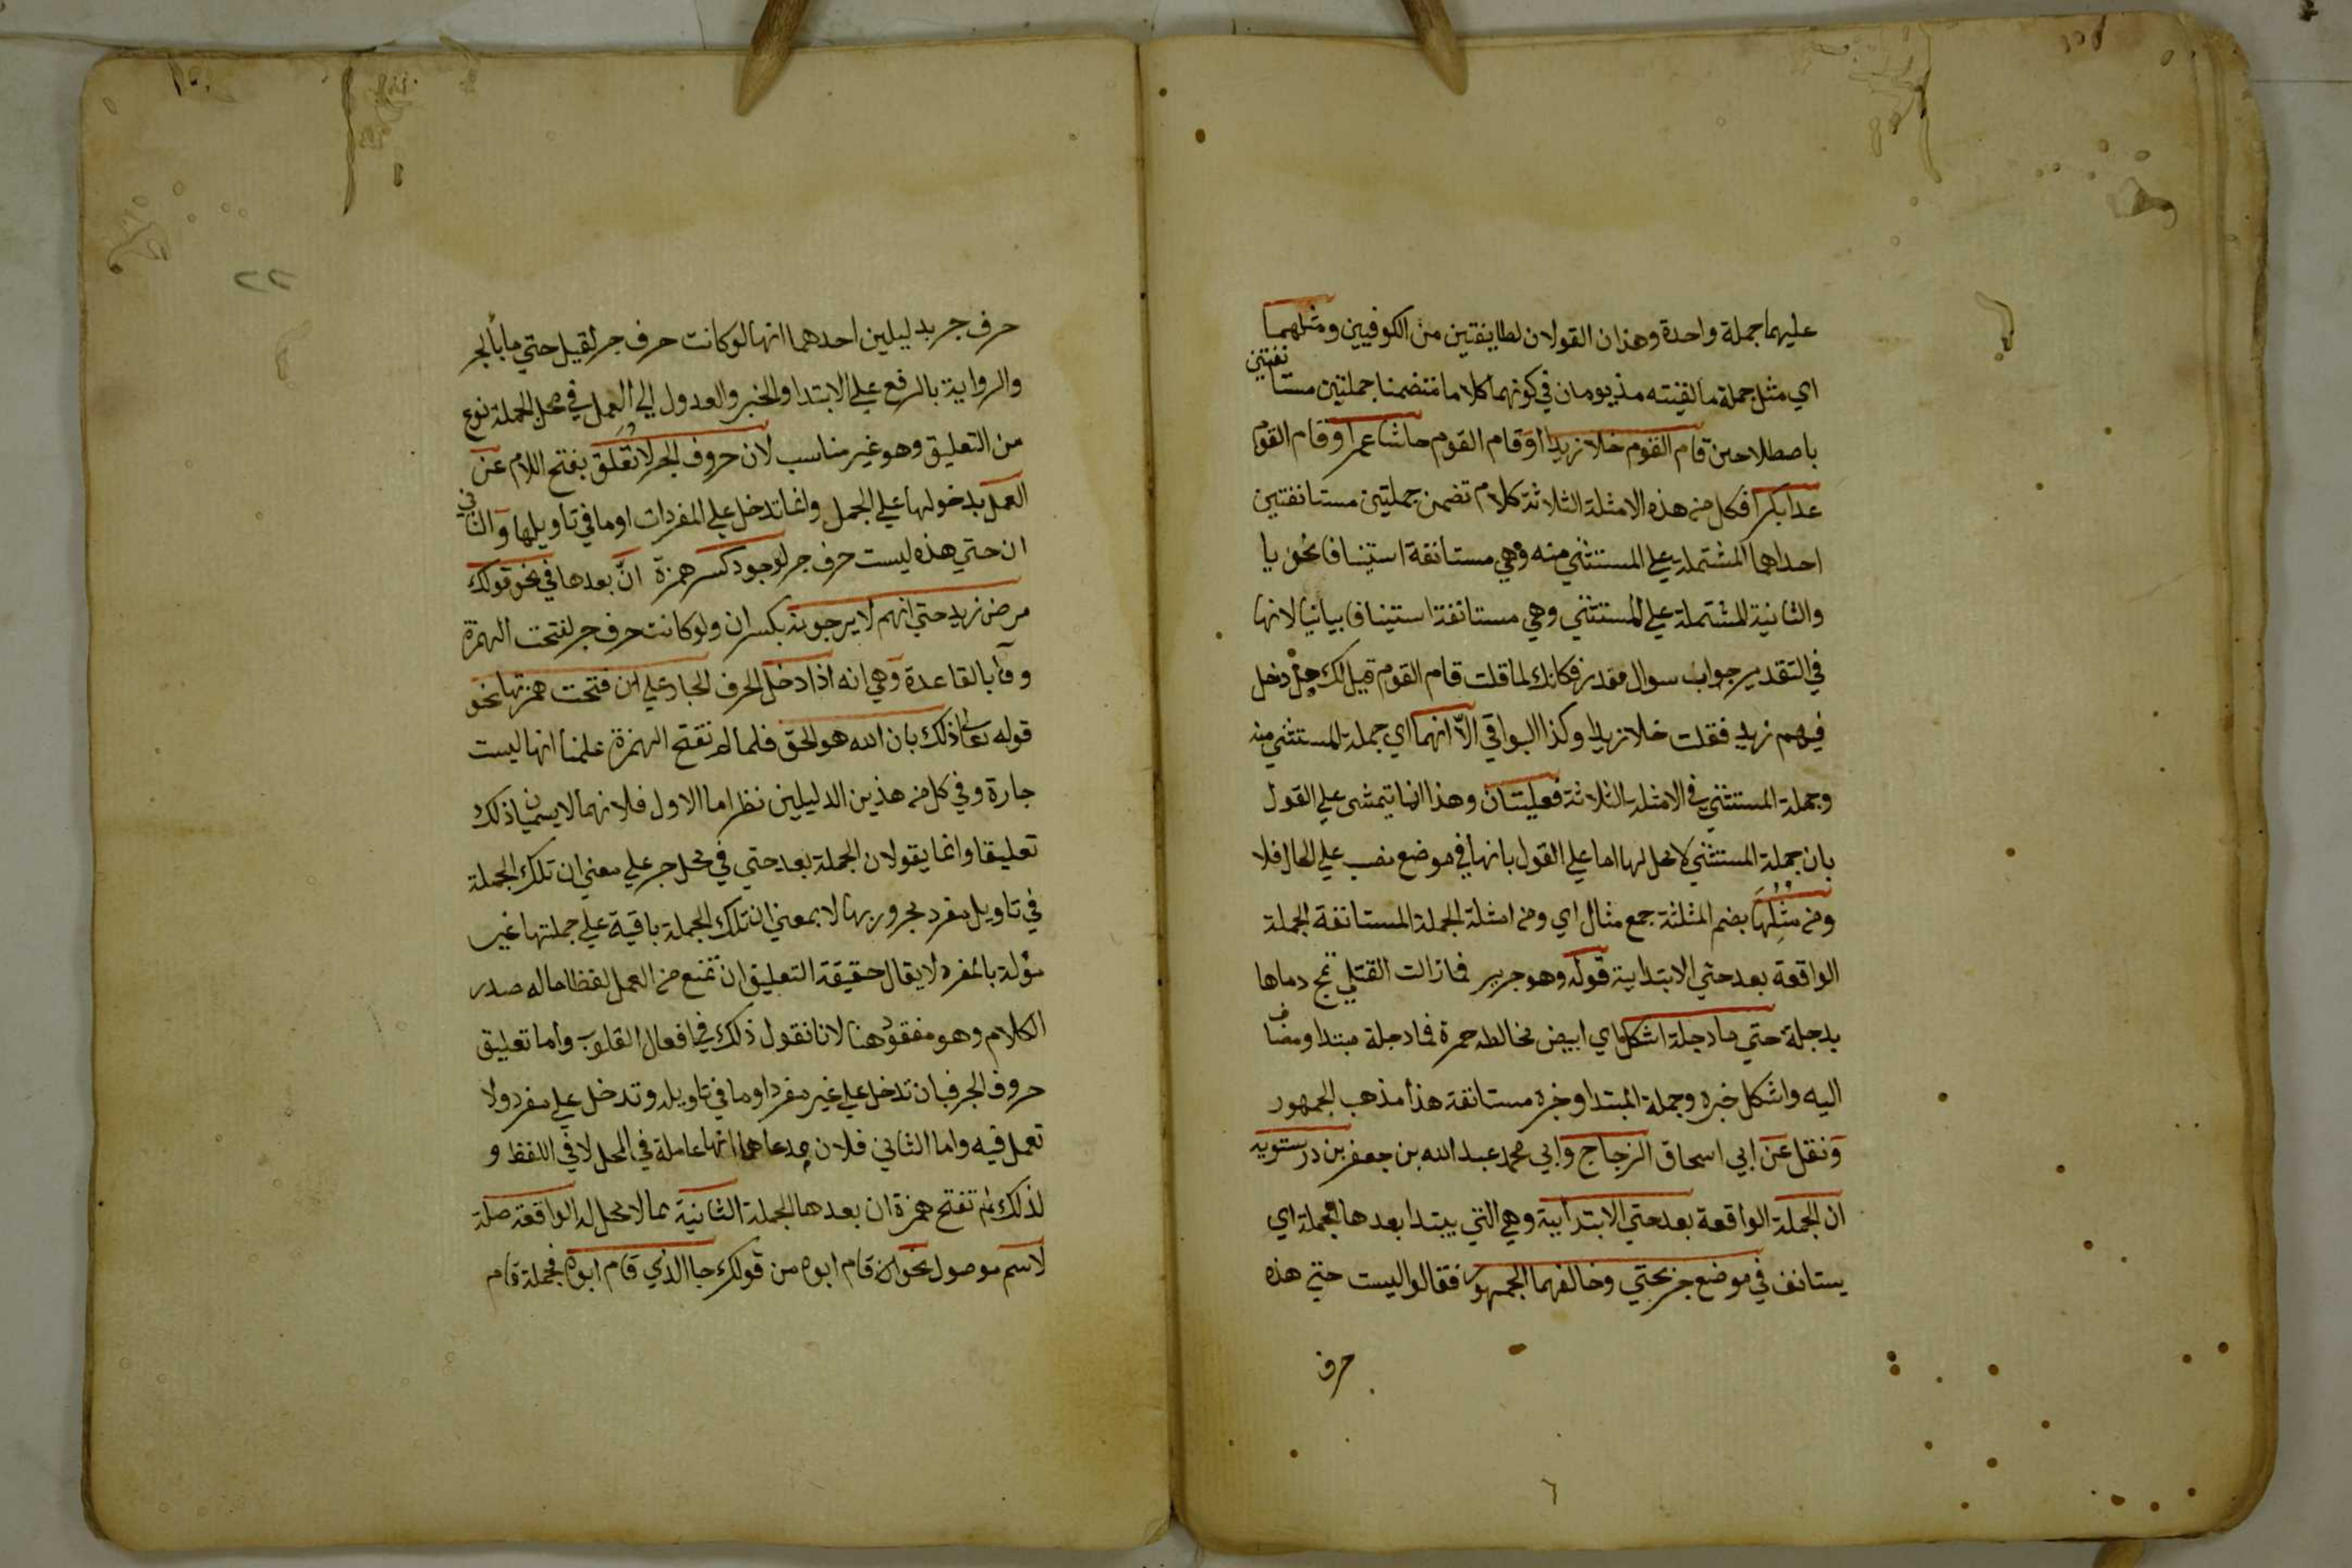 عليهما جملة واحدة وهذان القولان لطايفتين من الكوفيين ومثلهما
اي مثل جملة ما لقيته مذ يومان في كونهما كلاما متضمنا جملتين مستانفتين
باصطلاحين قام القوم خلا زيدا او قام القوم حاشا عمرا وقام القوم
عدا بكرا فكل من هذه الامثلة الثلاثة كلام تضمن جملتين مستانفتين
احداهما المشتملة علي المستثني منه وهي مستانفة استينافا نحويا
والثانية المشتملة علي المستثني وهي مستانفة استينافا بيانيا لانها
في التقدير جواب سوال مقدر فكانك لما قلت قام القوم قيل لك هل دخل
فيهم زيد فقلت خلا زيدا وكذا البواقي الا انهما اي جملة المستثني منه
وجملة المستثني في الامثلة الثلاثة فعليتان وهذا انما يتمشى علي القول
بان جملة المستثني لا محل لها اما علي القول بانها في موضع نصب علي الحال فلا
ومن مثلها بضم المثلثة جمع مثال اي ومن امثلة الجملة المستانفة الجملة
الواقعة بعد حتي الابتدايية قوله وهو جرير فما زالت القتلي تمج دماها
بدجلة حتي ما دجلة اشكل اي ابيض يخالطه حمرة فما دجلة مبتدا ومضاف
اليه واشكل خبره وجملة المبتدا وخبره مستانفة هذا مذهب الجمهور
ونقل عن ابي اسحاق الزجاج وابي محمد عبد الله بن جعفر بن درستويه
ان الجملة الواقعة بعد حتي الابتدايية وهي التي يبتدا بعدها الجملة اي
يستانف في موضع جر بحتي وخالفهما الجمهور فقالوا ليست حتي هذه
حرف
٢٢
حرف جر بدليلين احدهما انها لو كانت حرف جر لقيل حتي ما بالجر
والرواية بالرفع علي الابتدا والخبر والعدول الي العمل في محل الجملة نوع
من التعليق وهو غير مناسب لان حروف الجر لا تُعَلَّق بفتح اللام عن
العمل بدخولها علي الجمل وانما تدخل علي المفردات او ما في تاويلها والثاني
ان حتي هذه ليست حرف جر لوجود كسر همزة انّ بعدها في نحو قولك
مرض زيد حتي انهم لا يرجونه بكسر ان ولو كانت حرف جر لفتحت الهمزة
وفا بالقاعدة وهي انه اذا دخل الحرف الجار علي ان فتحت همزتها نحو
قوله تعالى ذلك بان الله هو الحق فلما لم تفتح الهمزة علمنا انها ليست
جارة وفي كل من هذين الدليلين نظر اما الاول فلانهما لا يسميان ذلك
تعليقا وانما يقولان الجملة بعد حتي في محل جر علي معني ان تلك الجملة
في تاويل مفرد مجرور بها لا بمعني ان تلك الجملة باقية علي جملتها غير
مؤلة بالمفرد لا يقال حقيقة التعليق ان تمنع من العمل لفظا ما له صدر
الكلام وهو مفقود هنا لانا نقول ذلك في افعال القلوب واما تعليق
حروف الجر فبان تدخل علي غير مفرد او ما في تاويله وتدخل علي مفرد ولا
تعمل فيه واما الثاني فلان مدعاهما انها عاملة في المحل لا في اللفظ و
لذلك لم تفتح همزة ان بعدها الجملة الثانية مما لا محل له الواقعة صلة
لاسم موصول نحو ان قام ابوه من قولك جا الذي قام ابوه فجملة قام